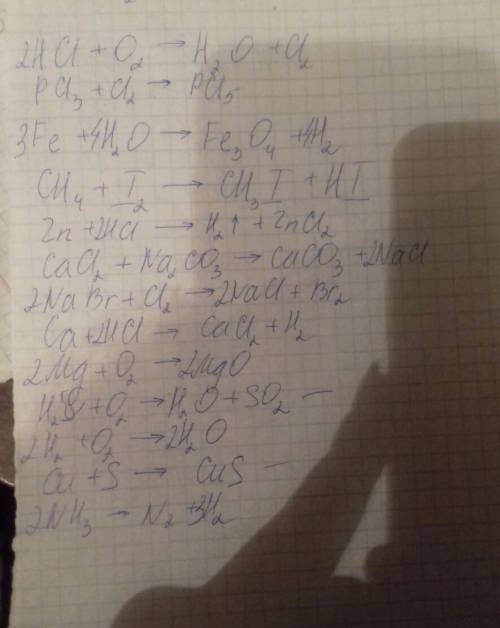 2HCl + O₂ → H₂O + Cl₂
PCl₃ + Cl₂ → PCl₅
3Fe + 4H₂O → Fe₃O₄ + 4H₂
CH₄ + I₂ → CH₃I + HI
Zn + 2HCl → H₂↑ + ZnCl₂
CaCl₂ + Na₂CO₃ → CaCO₃ + 2NaCl
2NaBr + Cl₂ → 2NaCl + Br₂
Ca + 2HCl → CaCl₂ + H₂
2Mg + O₂ → 2MgO
H₂S + O₂ → H₂O + SO₂ —
2H₂ + O₂ → 2H₂O
Cu + S → CuS —
2NH₃ → N₂ + 3H₂